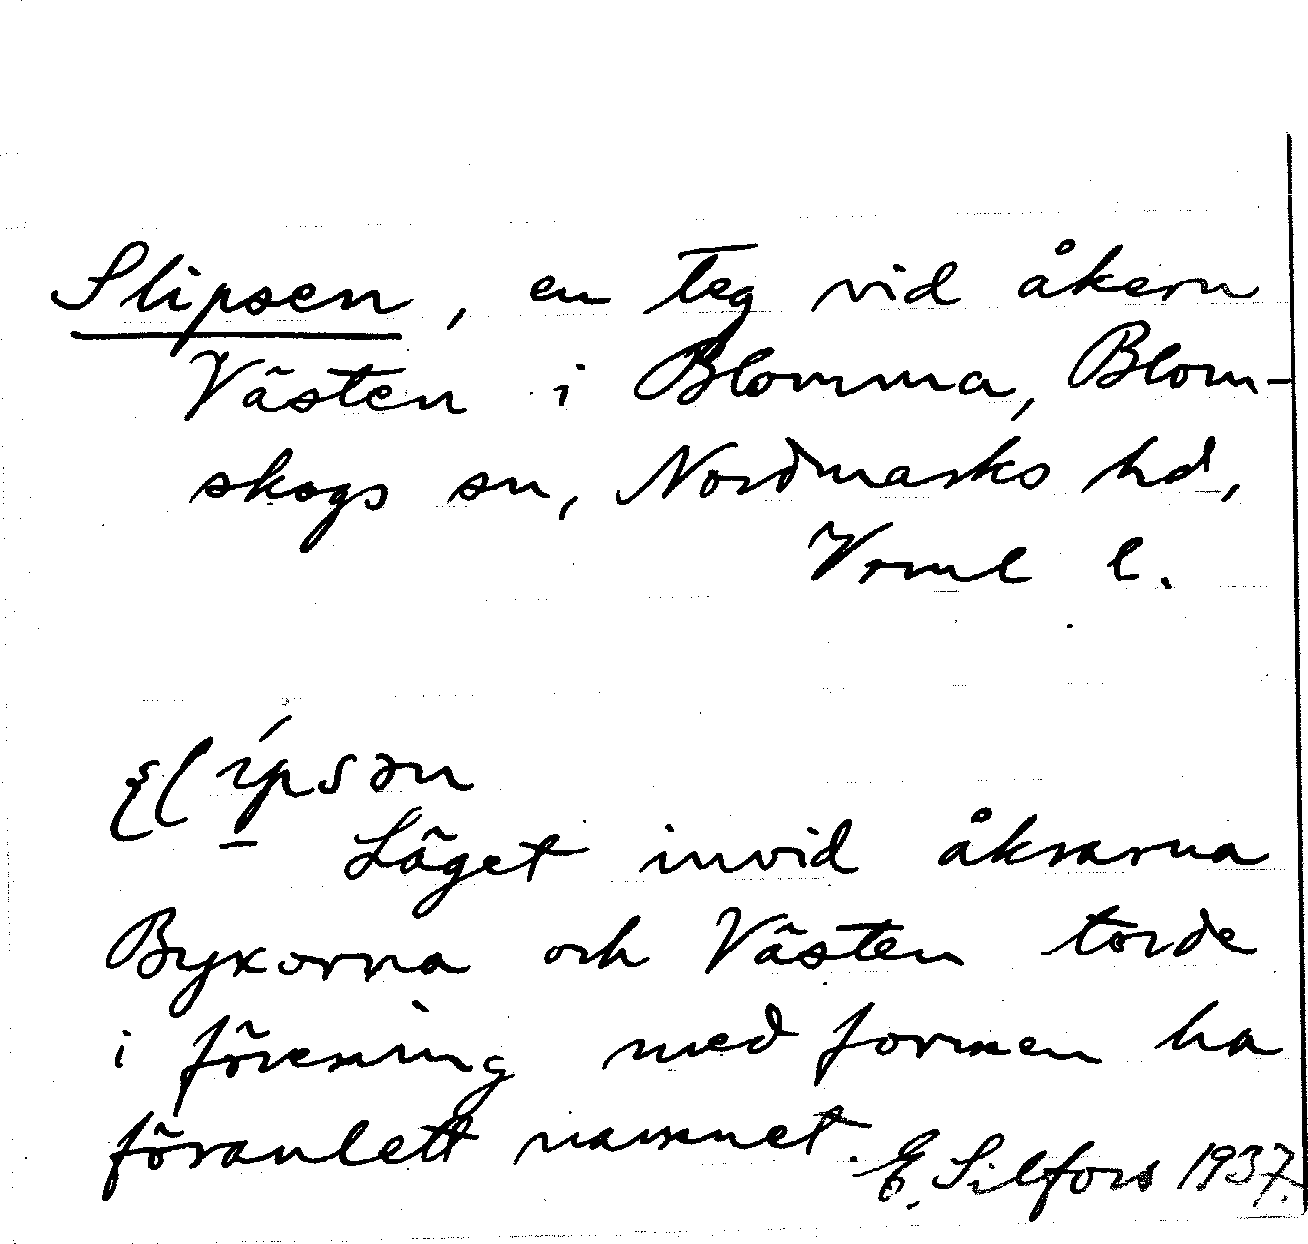 Slipsen, en teg vid åkern
Västen i Blomma, Blom-
skogs sn, Nordmarks hd,
Vrml l.
Läget invid åkrarna
Byxorna och Västen torde
i förening med formen ha
föranlett namnet. E. Silfors 1937.